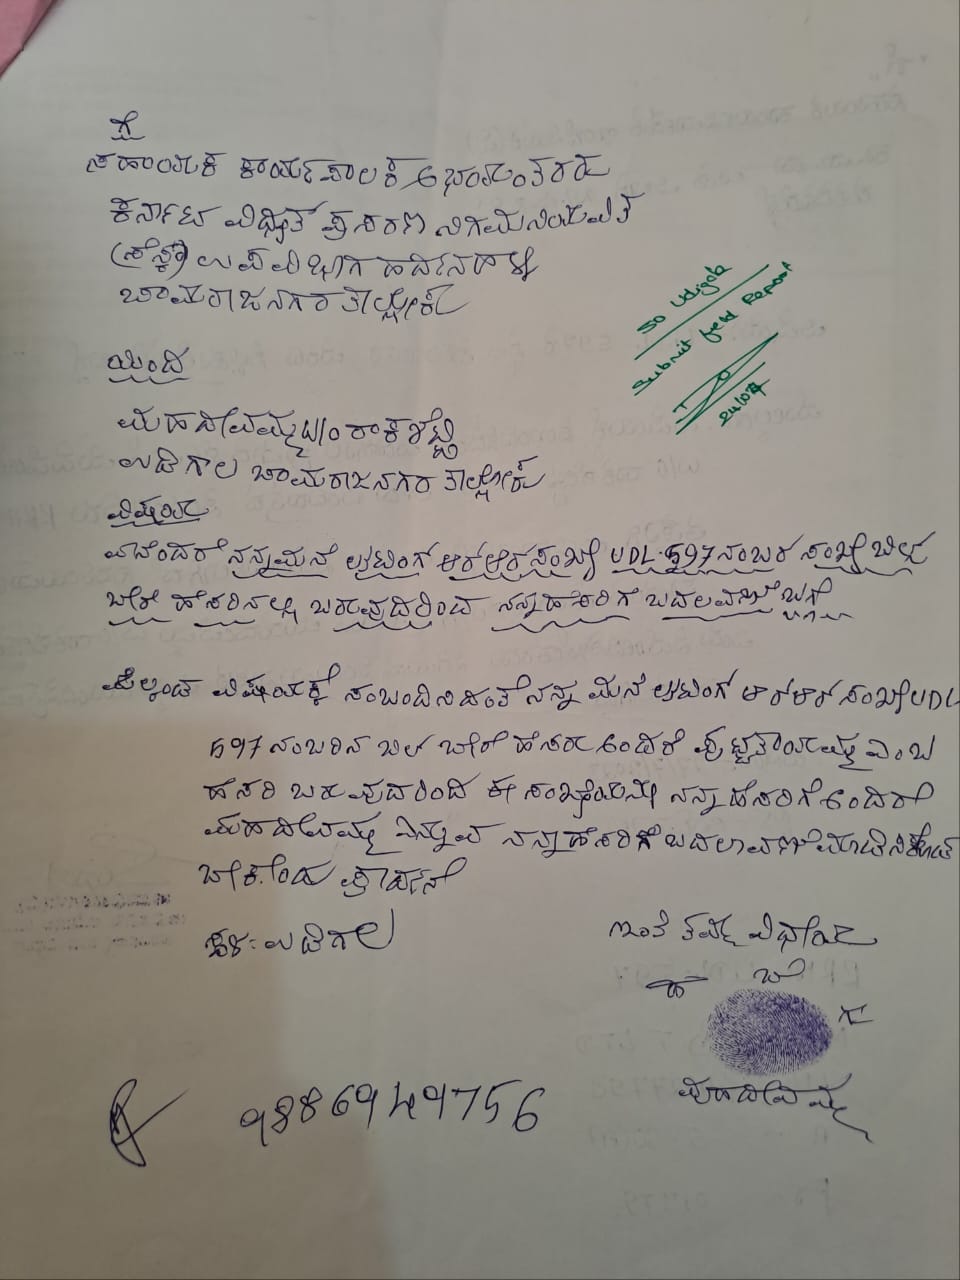 ಗೆ
ಸಹಾಯಕ ಕಾರ್ಯಪಾಲಕ ಅಭಿಯಂತರರು
ಕರ್ನಾಟಕ ವಿಧ್ಯುತ್ ಪ್ರಸರಣ ನಿಗಮನಿಯಮಿತ
(ಸೆಸ್ಕಾ) ಉಪವಿಭಾಗ ಹರ್ದನಹಳ್ಳಿ
ಚಾಮರಾಜನಗರ ತಾಲ್ಲೋಕ್
ಯಿಂದ
ಮಹದೇವಮ್ಮ W/o ರಾಕಶೆಟ್ಟಿ
ಉಡಿಗಾಲ ಚಾಮರಾಜನಗರ ತಾಲ್ಲೋಕ್
ವಿಷಯ
ಏನೆಂದರೆ ನನ್ನ ಮನೆ ಲೈಟಿಂಗ್ ಆರ್ ಆರ್ ಸಂಖ್ಯೆ UDL-597 ನಂಬರ ಸಂಖ್ಯೆ ಬಿಲ್
ಬೇರೆ ಹೆಸರಿನಲ್ಲಿ ಬರುವುದರಿಂದ ನನ್ನ ಹೆಸರಿಗೆ ಬದಲವಣೆ ಬಗ್ಗೆ
ಮೇಲ್ಕಂಡ ವಿಷಯಕ್ಕೆ ಸಂಬಂದಿಸಿದಂತೆ ನನ್ನ ಮನೆ ಲೈಟಿಂಗ್ ಆರ್ ಆರ್ ಸಂಖ್ಯೆ UDL
597 ನಂಬರಿನ ಬಿಲ್ ಬೇರೆ ಹೆಸರು ಅಂದರೆ ಪುಟ್ಟತಾಯಮ್ಮ ಎಂಬ
ಹೆಸರಿ ಬರುವುದರಿಂದ ಈ ಸಂಖ್ಯೆಯನ್ನು ನನ್ನ ಹೆಸರಿಗೆ ಅಂದರೆ
ಮಹದೇವಮ್ಮ ಎನ್ನುವ ನನ್ನ ಹೆಸರಿಗೆ ಬದಲಾವಣೆ ಮಾಡಿಸಿಕೊಡ
ಬೇಕೆಂದು ಪ್ರಾರ್ಥನೆ
ಸ್ಥಳ: ಉಡಿಗಾಲ
ಇಂತಿ ತಮ್ಮ ವಿಧೇಯ
ಹೆ ಬೆ ಗು
ಮಹದೇವಮ್ಮ
9886949756
SO Udigala
Submit field Report
24/07